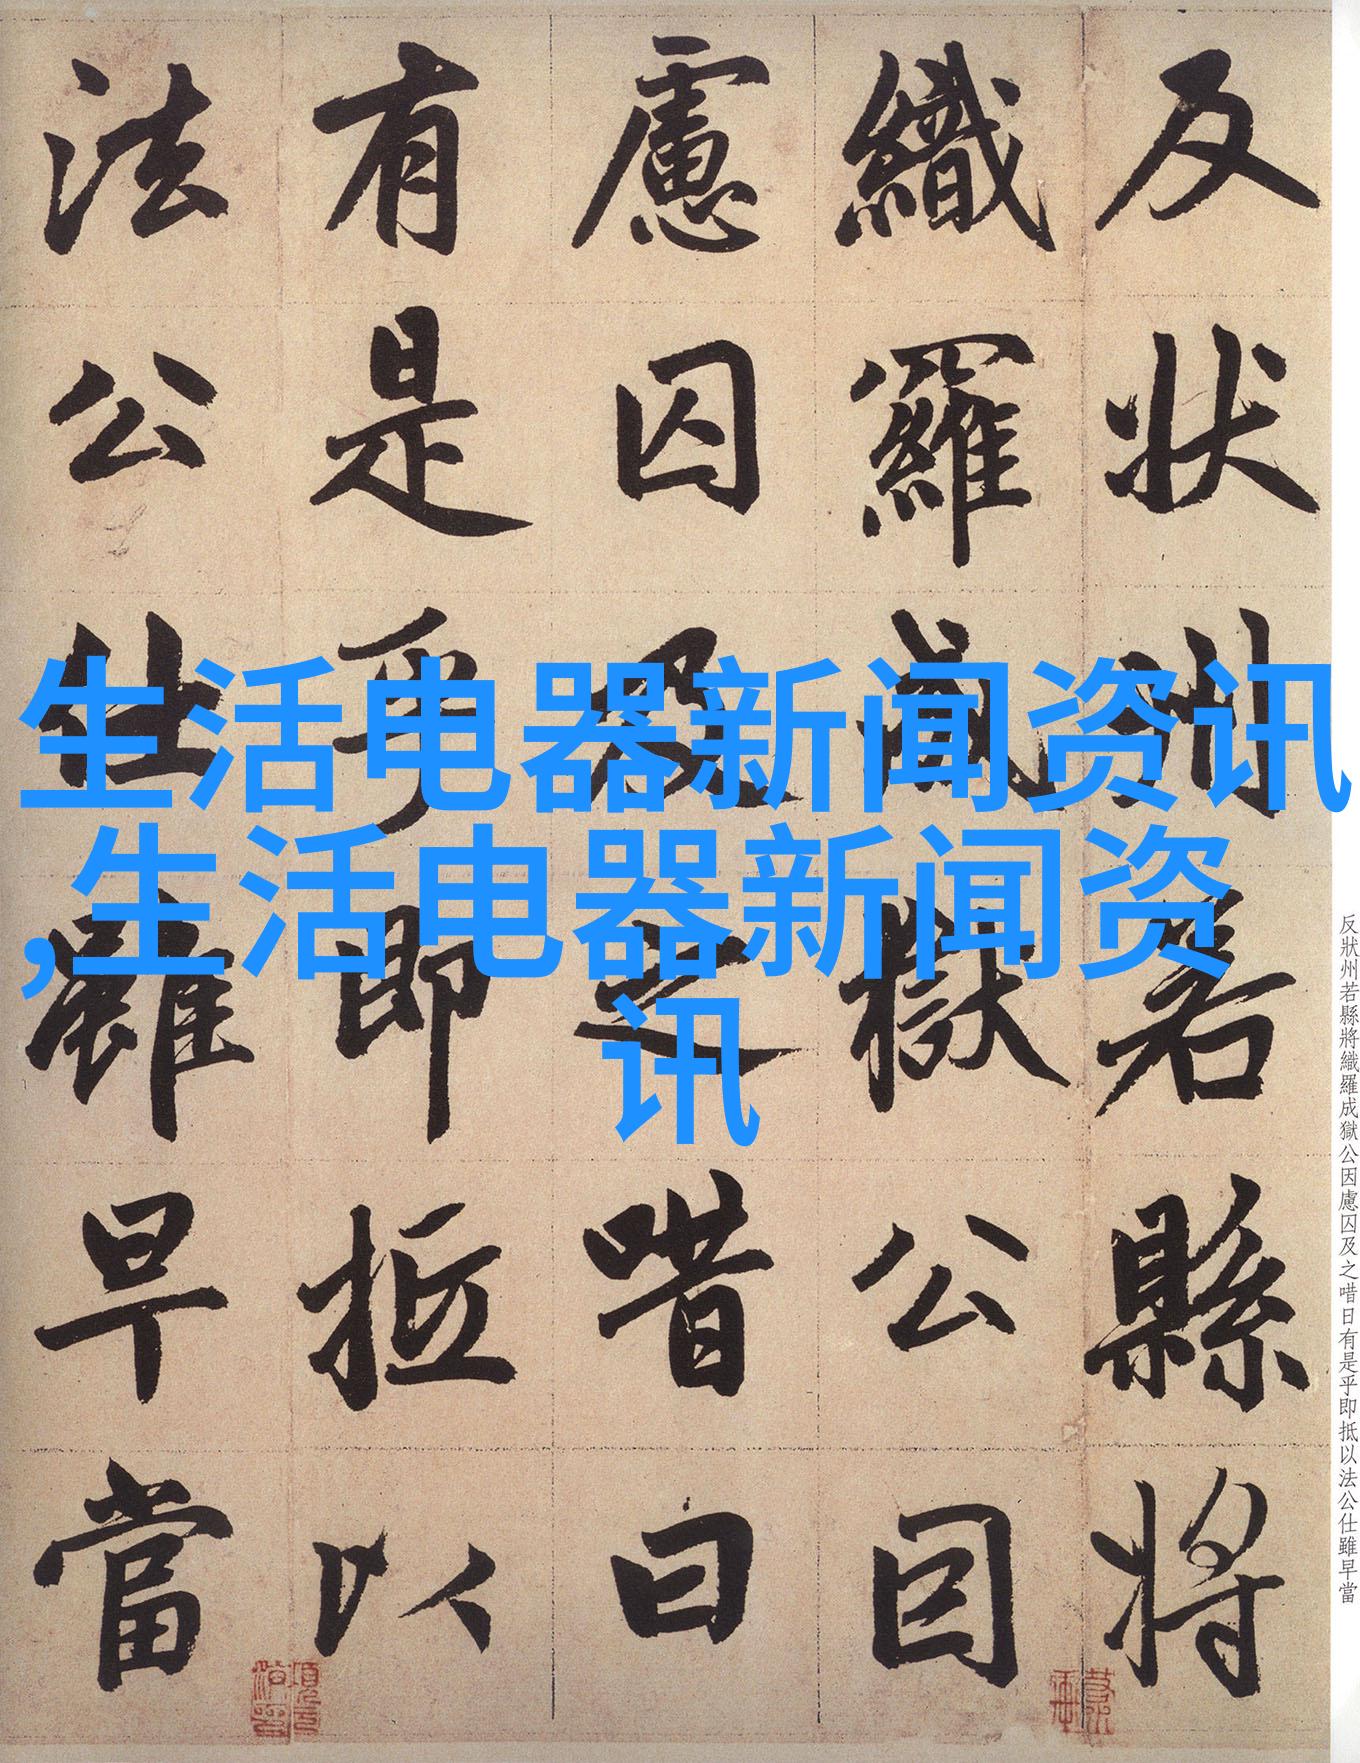 反狀州若縣將
織羅成獄公因
慮囚及之唶曰
有是乎即抵以
法公仕雖早當
生活电器新闻资讯
,生活电器新闻资
讯
反狀州若縣將織羅成獄公因慮囚及之唶日有是乎即抵以法公仕雖早當